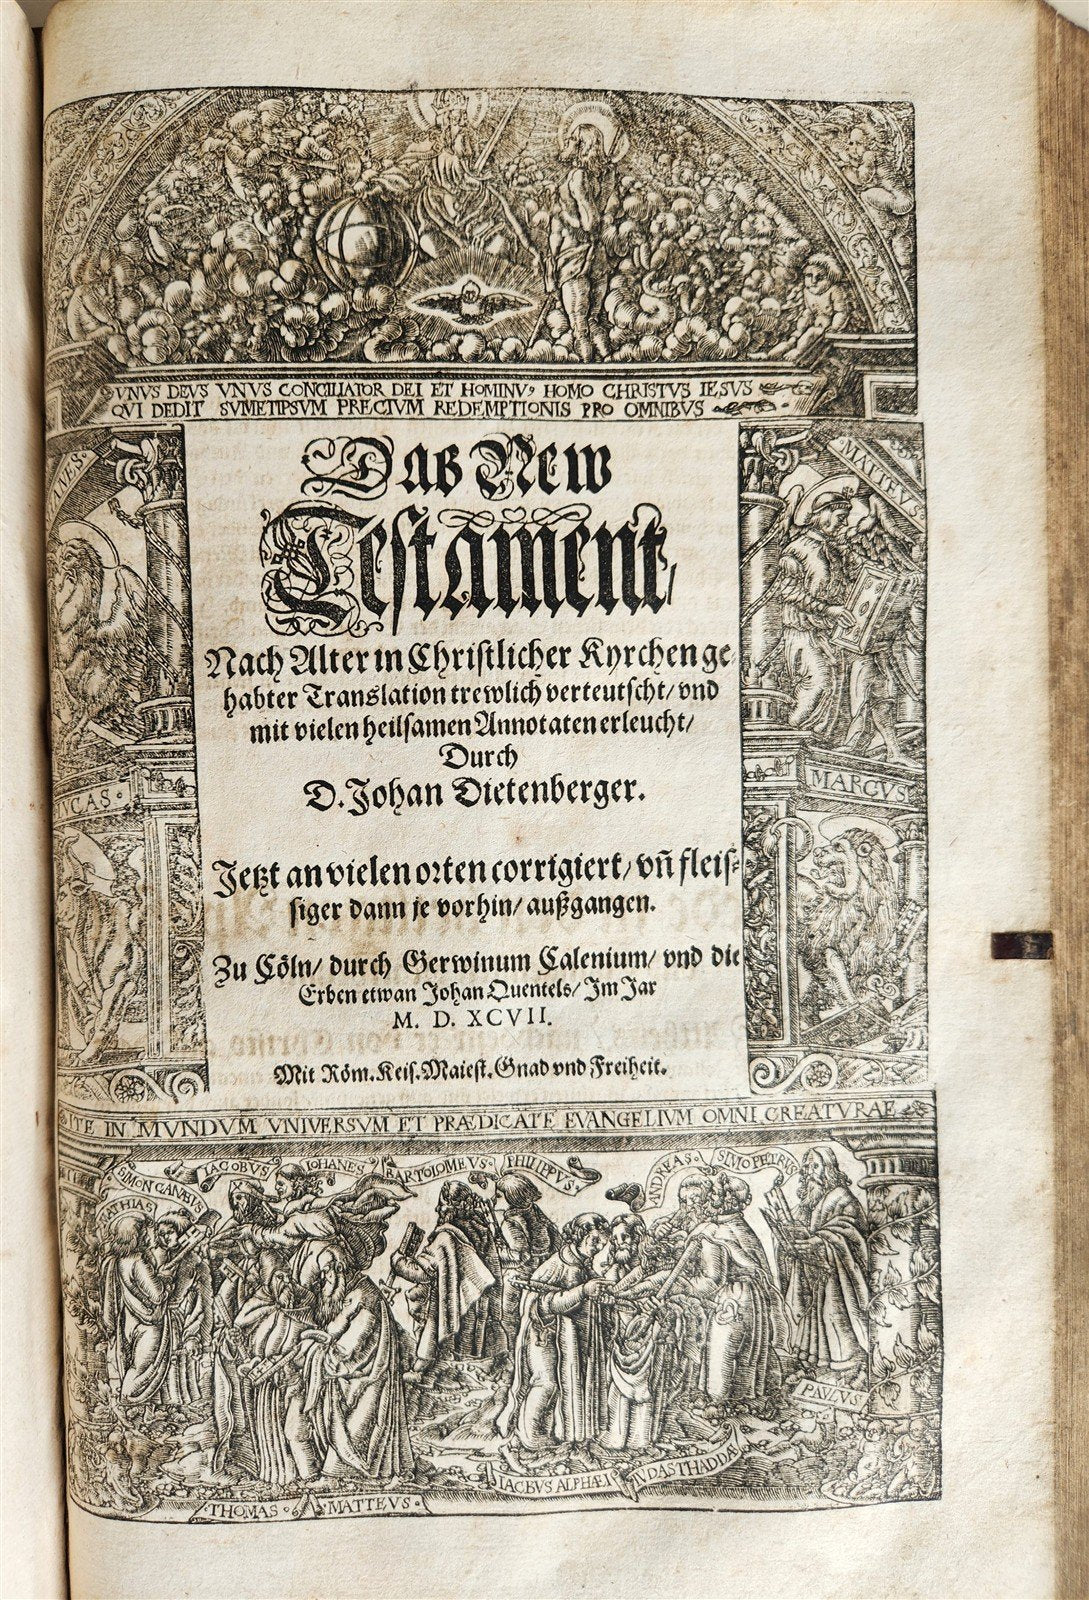 VNVS DEVS VNVS CONCILIATOR DEI ET HOMINVꝰ HOMO CHRISTVS IESVS
QVI DEDIT SVMETIPSVM PRECIVM REDEMPTIONIS PRO OMNIBVS
Das New
Testament/
Nach Alter in Christlicher Kyrchen ge-
habter Translation trewlich verteutscht/ vnd
mit vielen heilsamen Annotaten erleucht/
Durch
D. Johan Dietenberger.
Jetzt an vielen orten corrigiert/ vñ fleis-
siger dann je vorhin/ außgangen.
Zu Cöln/ durch Gerwinum Calenium/ vnd die
Erben etwan Johan Quentels/ Im Jar
M. D. XCVII.
Mit Röm. Keis. Maiest. Gnad vnd Freiheit.
NES·
MATTEVS·
VCAS·
MARCVS·
ITE IN MVNDVM VNIVERSVM ET PRÆDICATE EVANGELIVM OMNI CREATVRAE
MATHIAS
SIMON CANAEVS
IACOBVS
IOHANES
BARTOLOMEVS·
PHILIPPVS·
ANDREAS·
SIMO PETRVS
PAVLVS·
IACBVS ALPHÆI
IVDAS THADDÆ
·THOMAS·
MATTEVS·